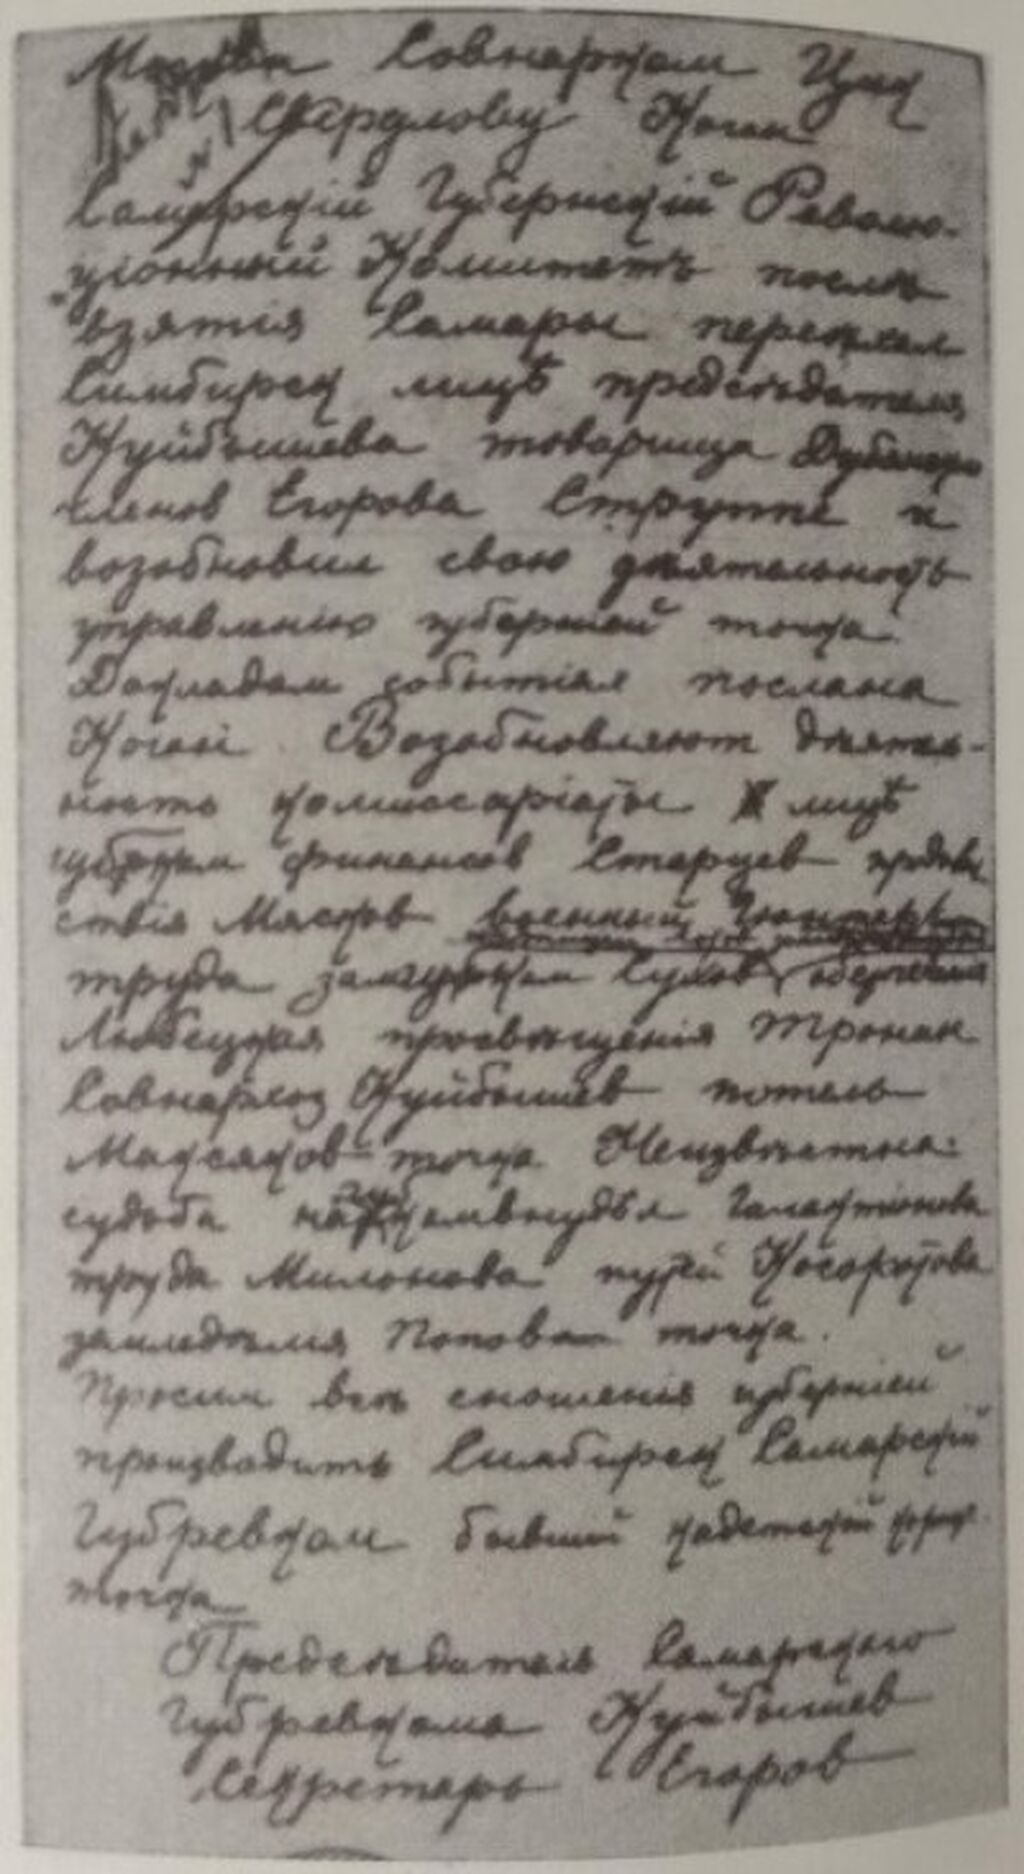 Москва Совнарком Цик
Свердлову Коган
Самарскiй Губернскiй Револю-
цiонный Комитетъ послѣ
взятiя Самары переехал
Симбирск лицѣ председателя
Куйбышева товарища
членов Егорова Струппе и
возобновил свою деятельность
управленiю губернiей точка
Докладом событiях послана
Коган Возобновляют деятель-
ность комиссарiаты лицѣ
финансов Старцев
ствiя Мясков военный Гюнтер
труда Сулов
Любецкая просвѣщенiя Тронин
Совнархоз Куйбышев
точка Неизвѣстна
судьба Галактiонова
труда Милонова путей Косоротова
земледѣлiя Попова точка.
Просим всѣ сношенiя губернiей
производить Симбирск Самарскiй
Губревком бывший кадетскiй корп.
точка
Председатель Самарского
Губревкома Куйбышев
Секретарь Егоров